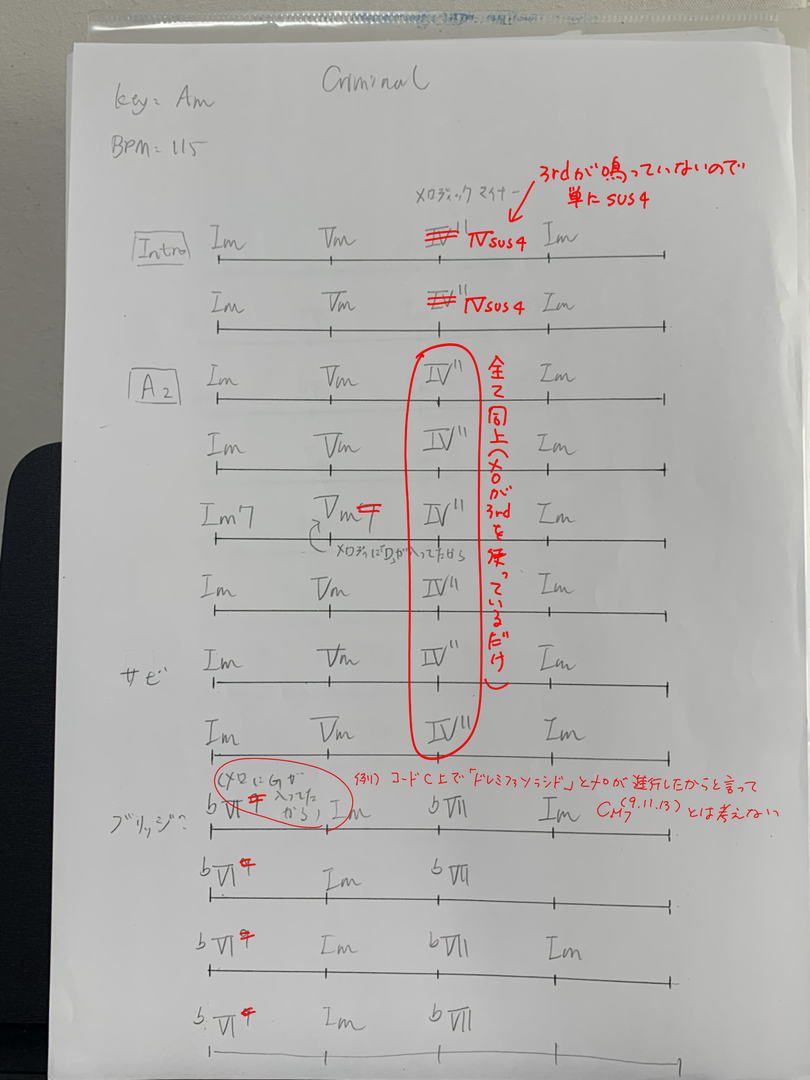 Criminal
key = Am
BPM = 115
3rdが鳴っていないので
単に sus4
メロディック マイナー
Intro Im Vm IV11 IVsus4 Im
Im Vm IV11 IVsus4 Im
A2 Im Vm IV11 Im
Im Vm IV11 Im
Im7 Vm7 IV11 Im
メロディに「D」が入ってたから
Im Vm IV11 Im
サビ Im Vm IV11 Im
Im Vm IV11 Im
全て同上(メロが3rdを使っているだけ)
(メロにGが
入ってた
から)
例) コードC上で「ドレミファソラシド」とメロが進行したからと言って
CM7(9.11.13)とは考えない
ブリッジ? ♭VI9 Im ♭VII Im
♭VI9 Im ♭VII
♭VI9 Im ♭VII Im
♭VI9 Im ♭VII